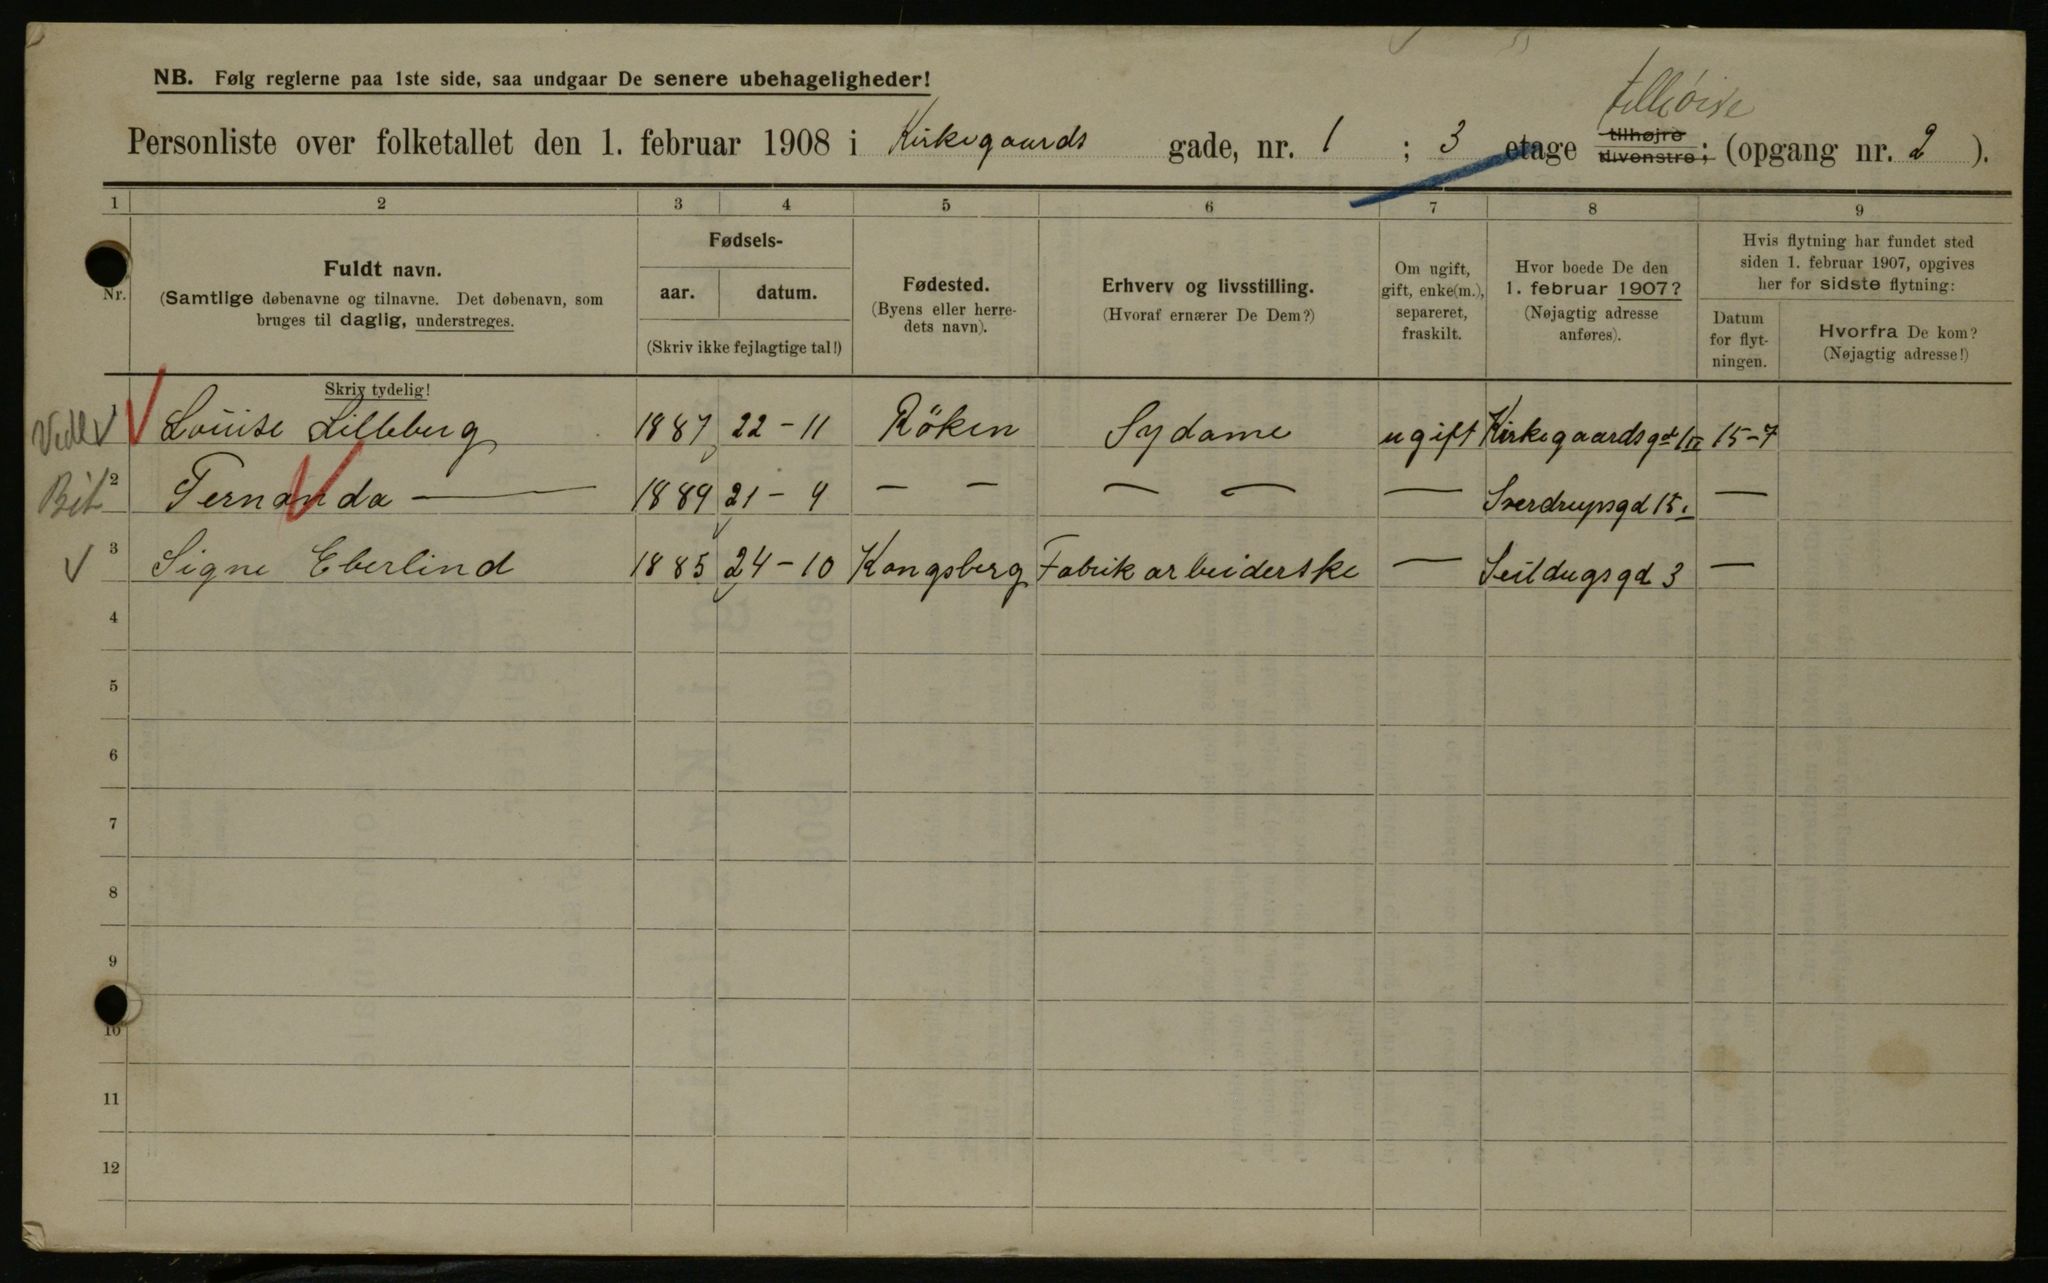 tilhøire
NB. Følg reglerne paa 1ste side, saa undgaar De senere ubehageligheder!
Personliste over folketallet den 1. februar 1908 i Kirkegaards gade, nr. 1 ; 3 etage tilhøjre tilvenstre; (opgang nr. 2 ).
1 2 3 4 5 6 7 8 9
Nr.
Fuldt navn.
(Samtlige døbenavne og tilnavne. Det døbenavn, som
bruges til daglig, understreges.
Skriv tydelig!
Fødsels-
aar. datum.
(Skriv ikke fejlagtige tal!)
Fødested.
(Byens eller herre-
dets navn).
Erhverv og livsstilling.
(Hvoraf ernærer De Dem?)
Om ugift,
gift, enke(m.),
separeret,
fraskilt.
Hvor boede De den
1. februar 1907?
(Nøjagtig adresse
anføres).
Hvis flytning har fundet sted
siden 1. februar 1907, opgives
her for sidste flytning:
Datum
for flyt-
ningen.
Hvorfra De kom?
(Nøjagtig adresse!)
1 Louise Lilleberg 1887 22-11 Röken Sydame ugift Kirkegaardsgd 1 II 15-7
Bit 2 Fernanda — 1889 21-9 — — — — — Sverdrupsgd 15 I —
3 Signe Eberlind 1885 24-10 Kongsberg Fabrikarbeiderske — Seildugsgd 3 —
4
5
6
7
8
9
10
11
12